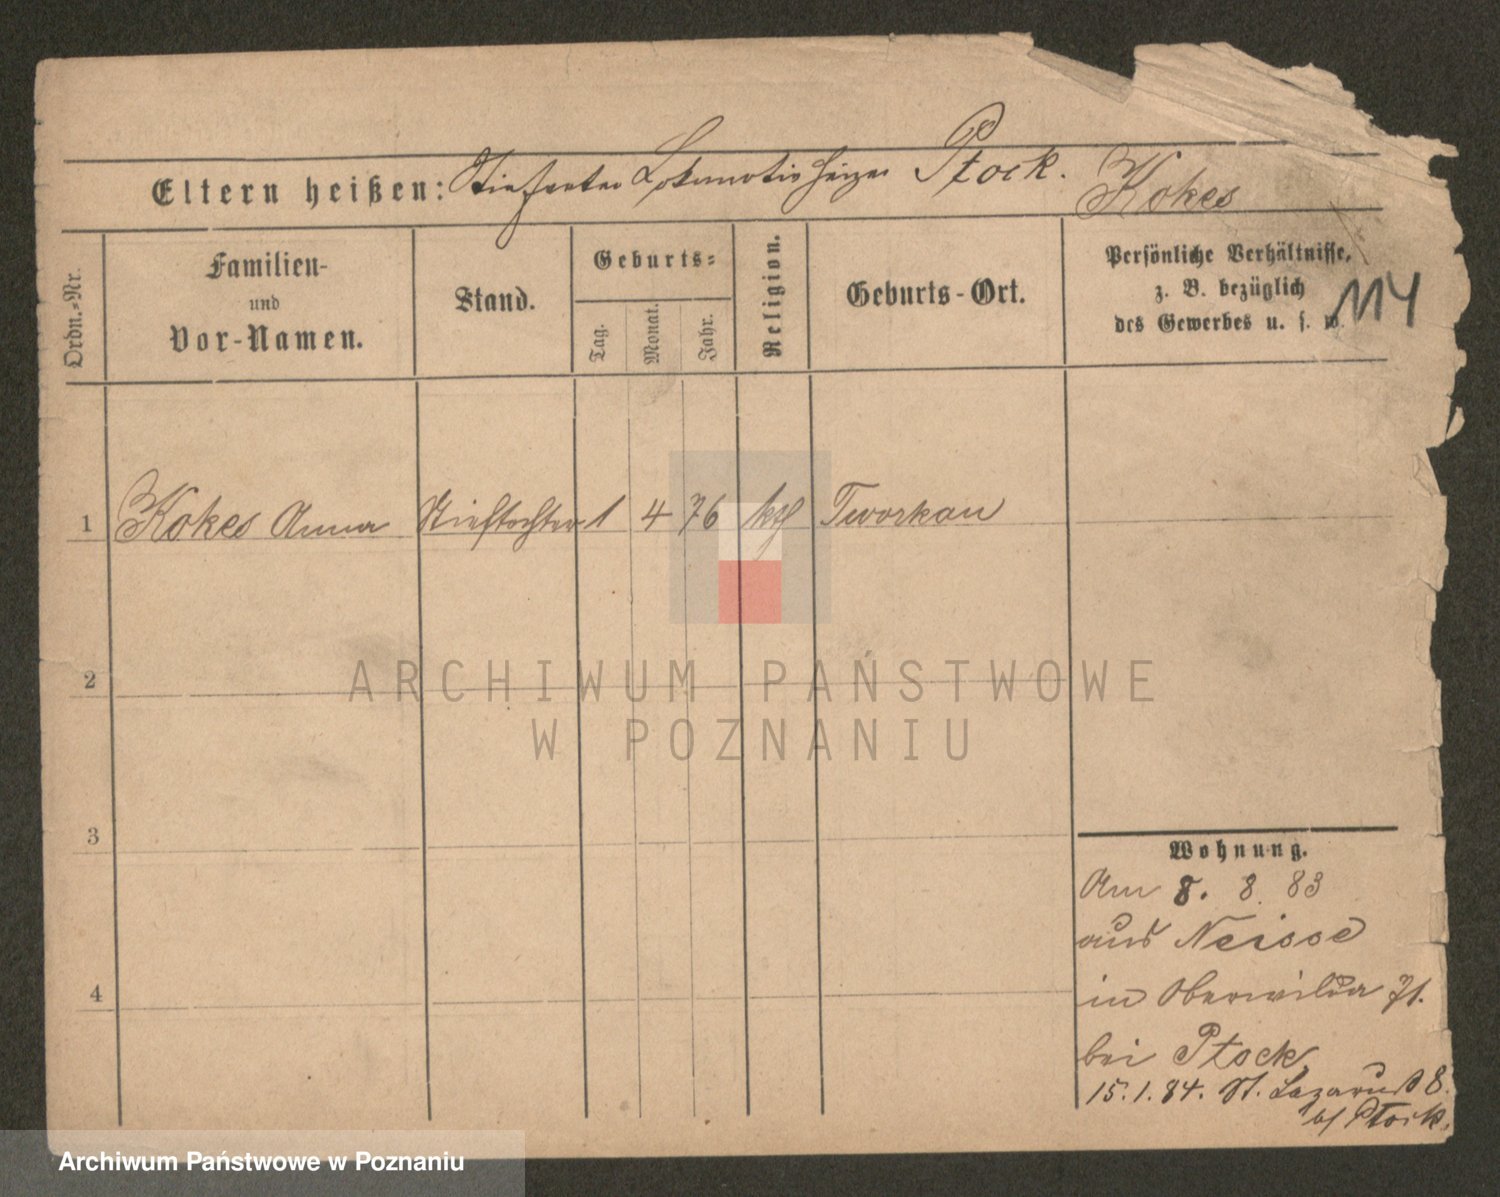 Eltern heißen: Stiefvater Lokomotivheizer Ptock. Kokes
Ordn.-Nr.
Familien-
und
Vor-Namen.
Stand.
Geburts-
Tag.
Monat.
Jahr.
Religion.
Geburts-Ort.
Persönliche Verhältnisse,
z. B. bezüglich
des Gewerbes u. s. w.
114
1 Kokes Anna Stieftochter 1 4 76 kth Tworkau
2
3
4
ARCHIWUM PAŃSTWOWE
W POZNANIU
Wohnung.
Am 8. 8. 83
aus Neisse
in Oberwilda 71.
bei Ptock
15.1.84. St. Lazarus 8.
b/ Ptock.
Archiwum Państwowe w Poznaniu